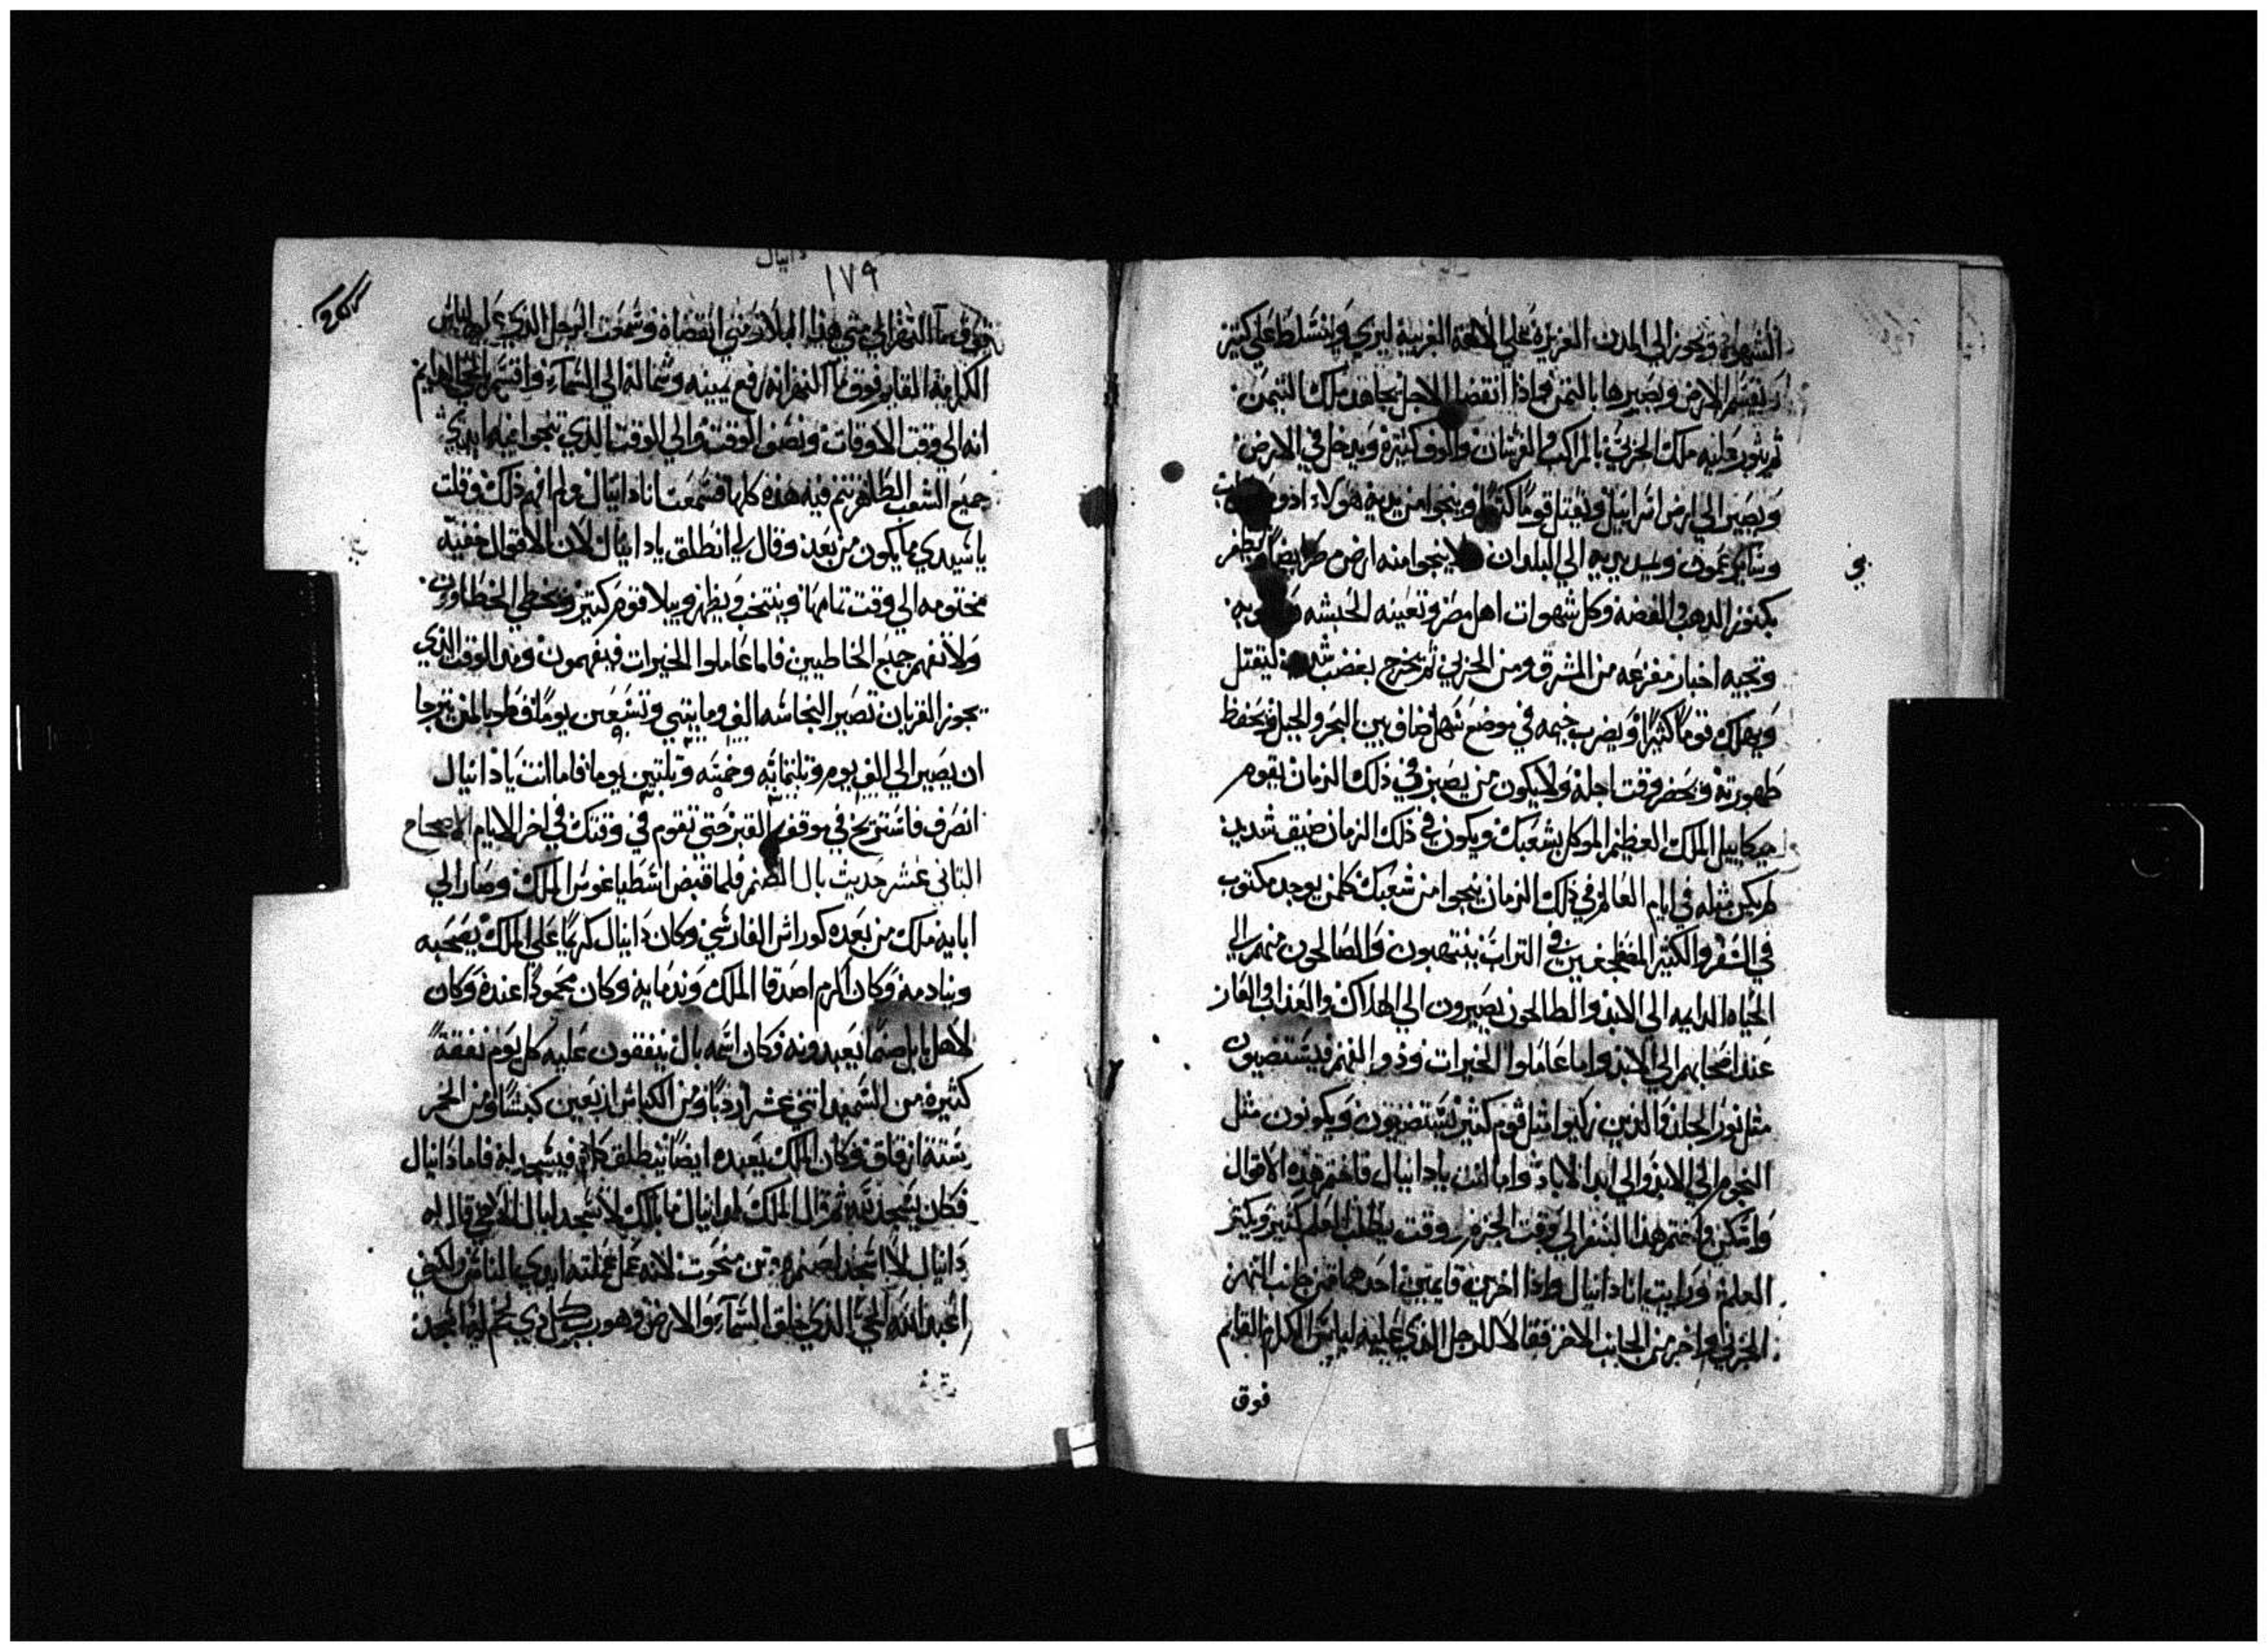 الشهوة ويجوز الي المدن العزيزة علي الالهة الغريبة ليري ويتسلط علي كثير
ويقسم الارض ويصيرها بالثمن فاذا انقضا الاجل يجاهد ملك التيمن
ثم يثور عليه ملك الجربي بالمراكب والفرسان والوف كثيرة ويدخل في الارض
ويصير الي ارض اسرائيل ويقتل قوما كثيرا وينجوا من يديه هولاء ادوم
وبنا عمون ويمد يديه الي البلدان لا ينجوا منه ارض مصر ايضا ويظفر
بكنوز الدهب والفضه وكل شهوات اهل مصر وتعينه الحبشه
وتجيه اخبار مفزعه من المشرق ومن الجربي ثم يخرج بغضب شديد ليقتل
ويهلك قوما كثيرا ويضرب خيمه في موضع سهل صاف بين البحر والجبل ويحفظ
طهورته ويحضر وقت اجله ولا يكون من يصير في ذلك الزمان يقوم
ميكاييل الملك العظيم الموكل بشعبك ويكون في ذلك الزمان ضيق شديد
لم يكن مثله في ايام العالم وفي ذلك الزمان ينجوا من شعبك كلمن يوجد مكتوب
في السفر والكثير المضطجعين في التراب ينتبهون والصالحون منهم الي
الحياه الدايمه الي الابد والطالحون يصيرون الي الهلاك والعذاب والعار
عند اصحابهم الي الابد واما عاملوا الخيرات وذوا الفهم فيستضيون
مثل نور الجلد والذين زكيوا مثل قوم كثير يستضيون ويكونون مثل
النجوم الي الابد والي ابد الاباد واما انت يا دانيال فاختم هذه الاقوال
واسكن واختم هذا السفر الي وقت الجزم وقت يطلب العلم كثير ويكثر
العلم ورايت انا دانيال واذا اخرين قايمين احدهما من جانب النهر
الجزي واخر من الجانب الاخر فقالا للرجل الذي عليه لباس الكرامة القايم
فوق
دانيال
١٧٩
فوق ما النهر الي متي هذا البلا ومتي انقضاه وسمعت الرجل الذي عليه لباس
الكرامة القايم فوق ما النهر انه رفع يمينه وشماله الي السماء واقسم بالحي الدايم
انه الي وقت الاوقات ونصف الوقت والي الوقت الذي تنجوا فيه ايدي
جميع الشعب الطاهر تتم فيه هذه كلها فسمعت انا دانيال ولم افهم ذلك وقلت
يا سيدي ما يكون من بعد وقال لي انطلق يا دانيال لان الاقوال خفيه
مختومه الي وقت تمامها وينتخب ويظهر ويبلا قوم كثير ويخطي الخطاوون
ولا يفهم جميع الخاطيين فاما عاملوا الخيرات فيفهمون ومن الوقت الذي
يجوز القربان تصير النجاسه الف ومايتي وتسعين يوما فطوبا لمن يترجا
ان يصير الي الف يوم وتلتمايه وخمسه وتلتين يوما فاما انت يا دانيال
انصرف فاستريح في موقف القبر حتي تقوم في وقتك في اخر الايام الاصحاح
التاني عشر حديث بال الصنم فلما قبض اسطياغوس الملك وصار الي
ابايه ملك من بعده كوراش الفارسي وكان دانيال كريما علي الملك يصحبه
وينادمه وكان اكرم اصدقا الملك وندمايه وكان محمودا عنده وكان
لاهل بابل صنما يعبدونه وكان اسمه بال ينفقون عليه كل يوم نفقة
كثيره من السميد اتني عشر اردبا ومن الكباش اربعين كبشا ومن الخمر
ستة ازقاق وكان الملك يعبده ايضا ينطلق كل يوم فيسجد له فاما دانيال
فكان يسجد لله ثم قال الملك لدانيال ما بالك لا تسجد لبال قال له
دانيال لا اسجد لصنم وثن منحوت لانه عمل عملته ايدي الناس ولكني
اعبد الله الحي الذي خلق السماء والارض وهو رب كل دي لحم له المجد